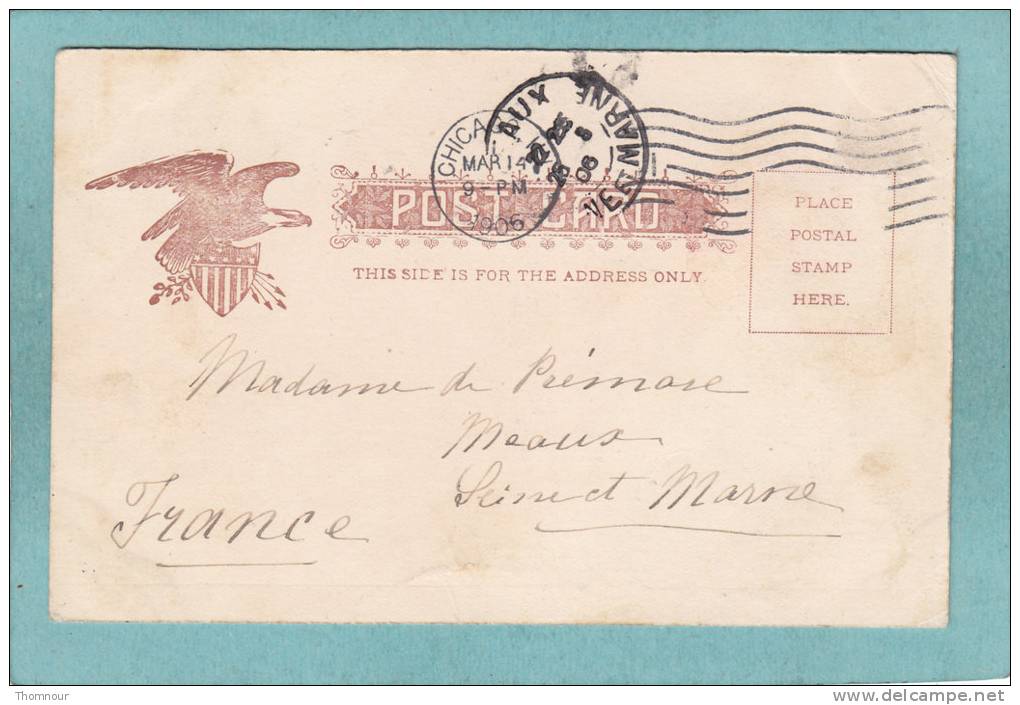 CHICA
MAR 14
9-PM
1906
AUX
MARNE
22 25
25 3
06
POST CARD
THIS SIDE IS FOR THE ADDRESS ONLY.
PLACE
POSTAL
STAMP
HERE.
Madame de Prémare
Meaux
Seine et Marne
France
Thomnour
www.delcampe.net